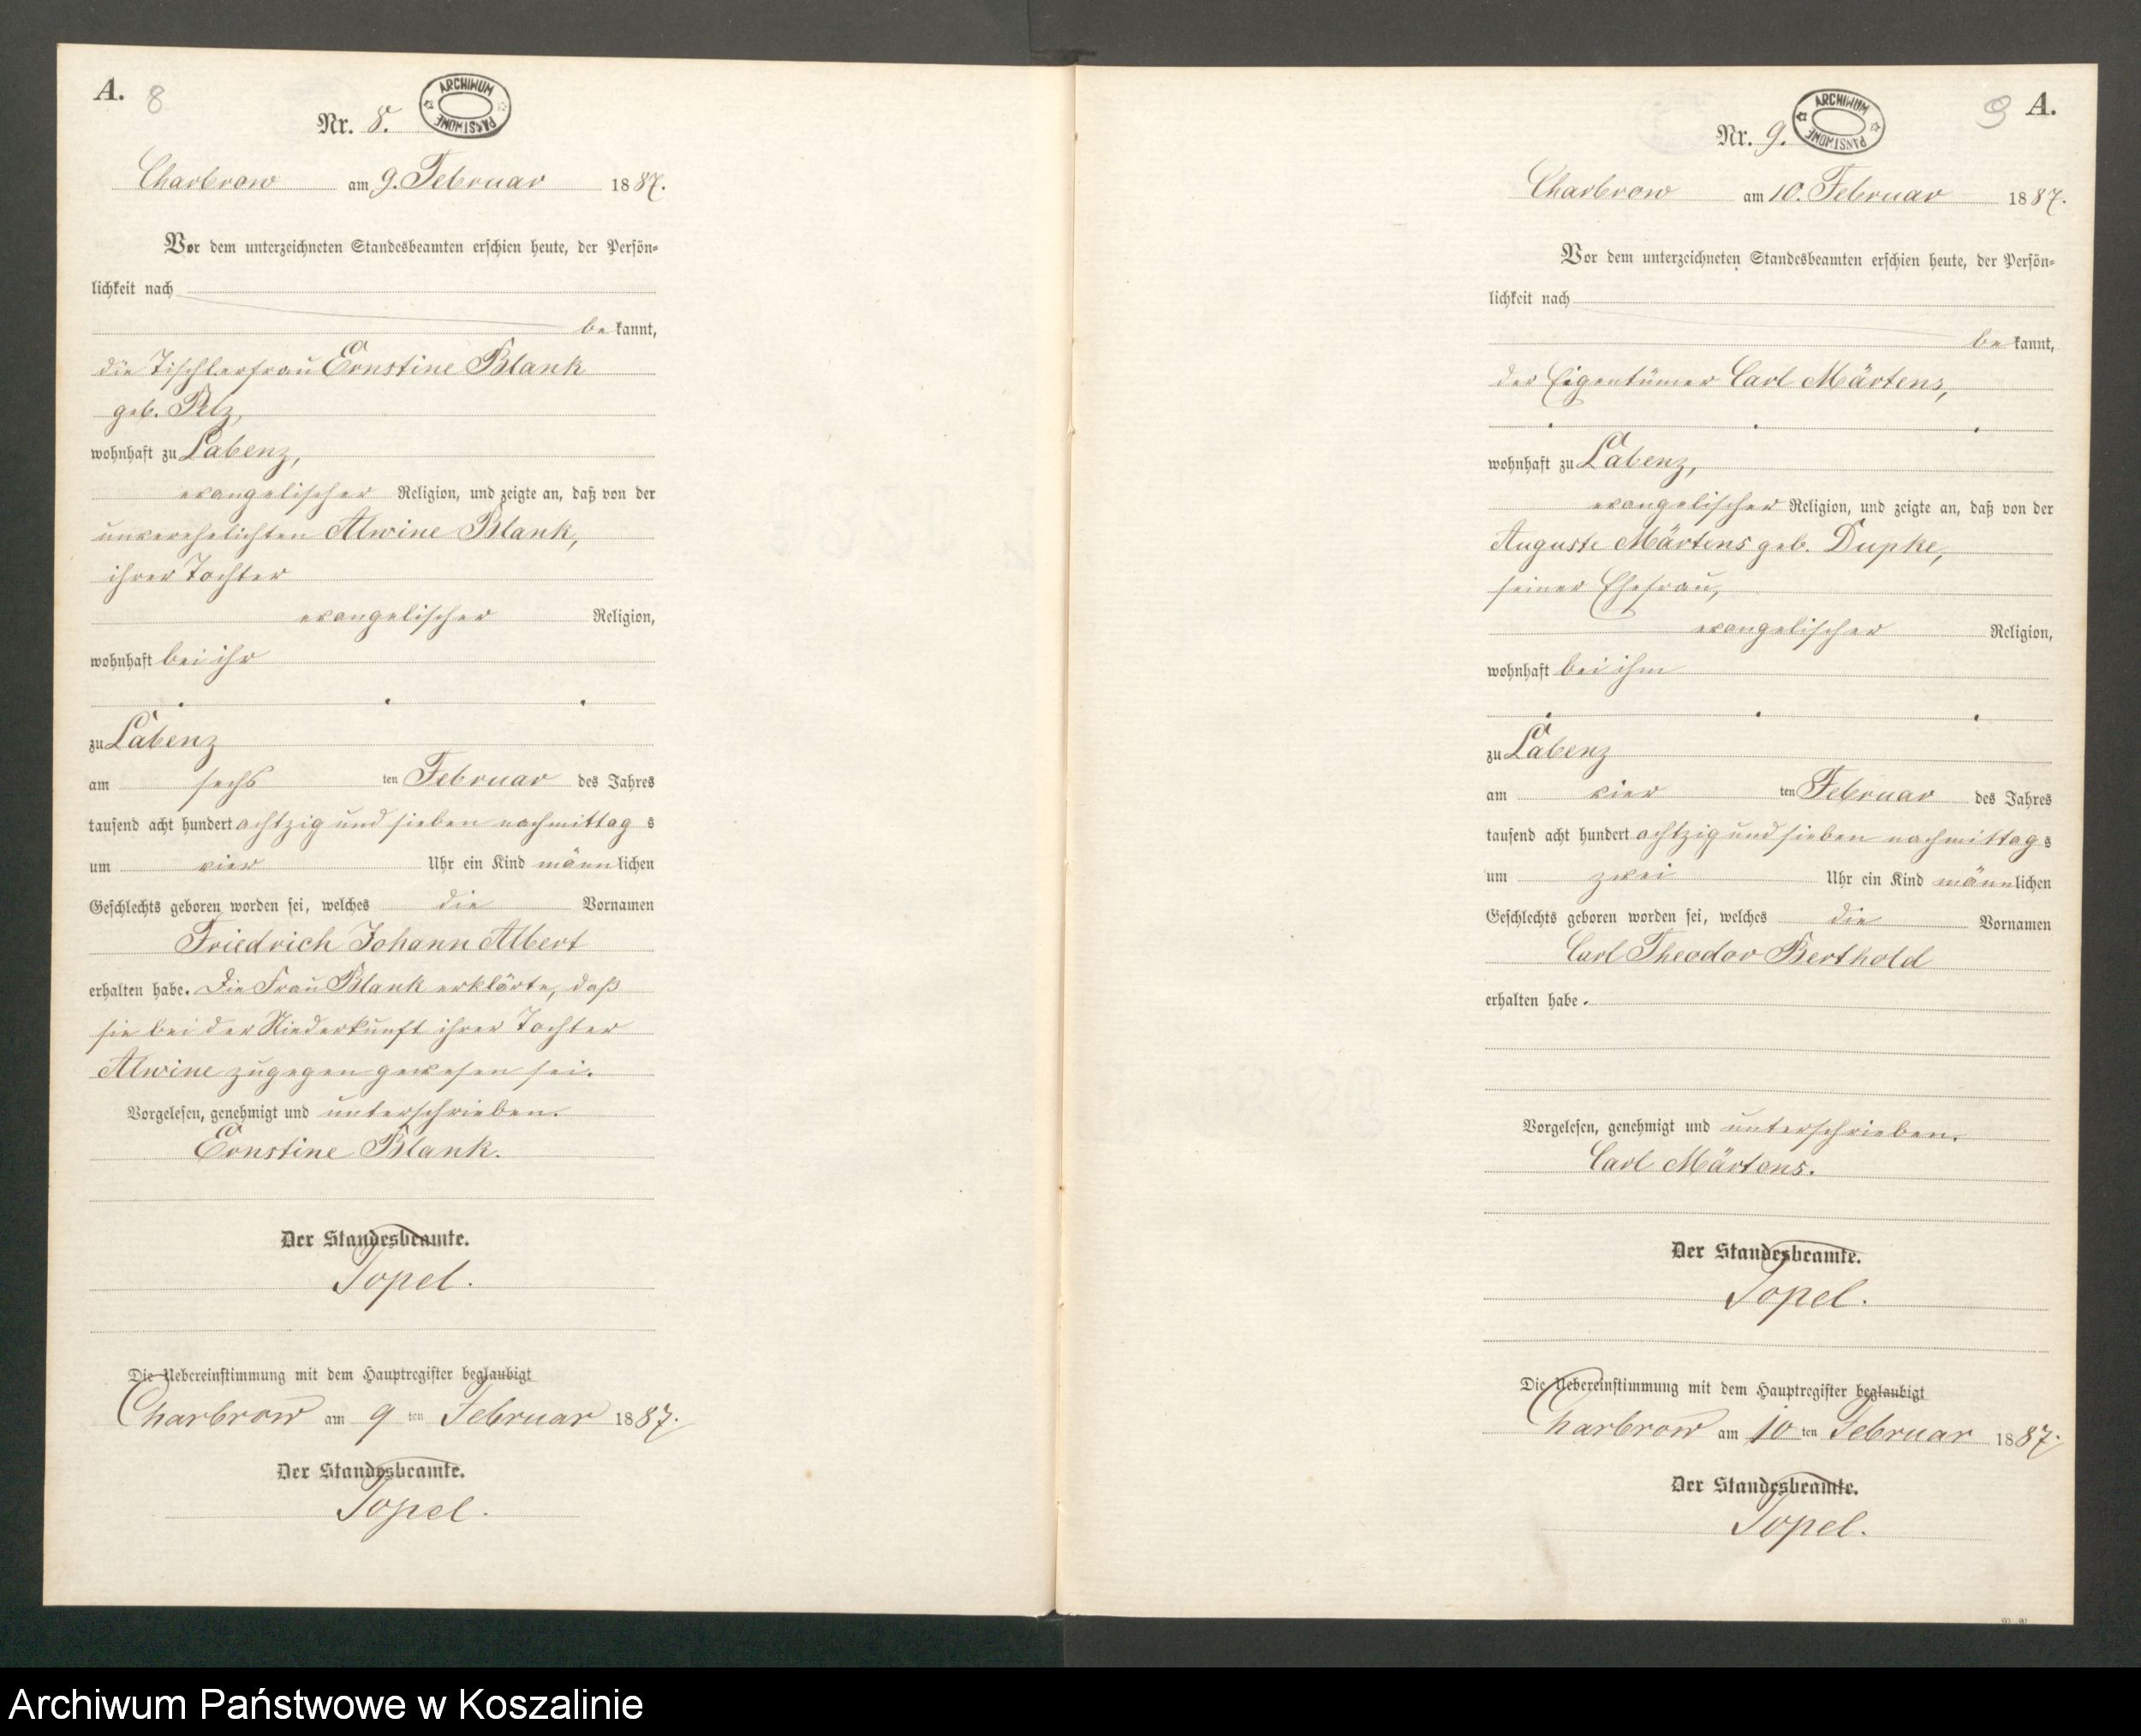 A. 8
Nr. 8.
ARCHIWUM PAŃSTWOWE
Charbrow am 9. Februar 1887.
Vor dem unterzeichneten Standesbeamten erschien heute, der Persön=
lichkeit nach
bekannt,
die Tischlerfrau Ernstine Blank
geb. Pelz,
wohnhaft zu Labenz,
evangelischer Religion, und zeigte an, daß von der
unverehelichten Alwine Blank,
ihrer Tochter
evangelischer Religion,
wohnhaft bei ihr
zu Labenz
am sechs ten Februar des Jahres
tausend acht hundert achtzig und sieben nachmittag s
um vier Uhr ein Kind männlichen
Geschlechts geboren worden sei, welches die Vornamen
Friedrich Johann Albert
erhalten habe. Die Frau Blank erklärte, daß
sie bei der Niederkunft ihrer Tochter
Alwine zugegen gewesen sei.
Vorgelesen, genehmigt und unterschrieben.
Ernstine Blank.
Der Standesbeamte.
Topel.
Die Uebereinstimmung mit dem Hauptregister beglaubigt
Charbrow am 9 ten Februar 1887.
Der Standesbeamte.
Topel.
9 A.
Nr. 9.
ARCHIWUM PAŃSTWOWE
Charbrow am 10. Februar 1887.
Vor dem unterzeichneten Standesbeamten erschien heute, der Persön=
lichkeit nach
bekannt,
der Eigentümer Carl Märtens,
wohnhaft zu Labenz,
evangelischer Religion, und zeigte an, daß von der
Auguste Märtens geb. Dupke,
seiner Ehefrau,
evangelischer Religion,
wohnhaft bei ihm
zu Labenz
am vier ten Februar des Jahres
tausend acht hundert achtzig und sieben nachmittag s
um zwei Uhr ein Kind männlichen
Geschlechts geboren worden sei, welches die Vornamen
Carl Theodor Berthold
erhalten habe.
Vorgelesen, genehmigt und unterschrieben.
Carl Märtens.
Der Standesbeamte.
Topel.
Die Uebereinstimmung mit dem Hauptregister beglaubigt
Charbrow am 10 ten Februar 1887.
Der Standesbeamte.
Topel.
Archiwum Państwowe w Koszalinie